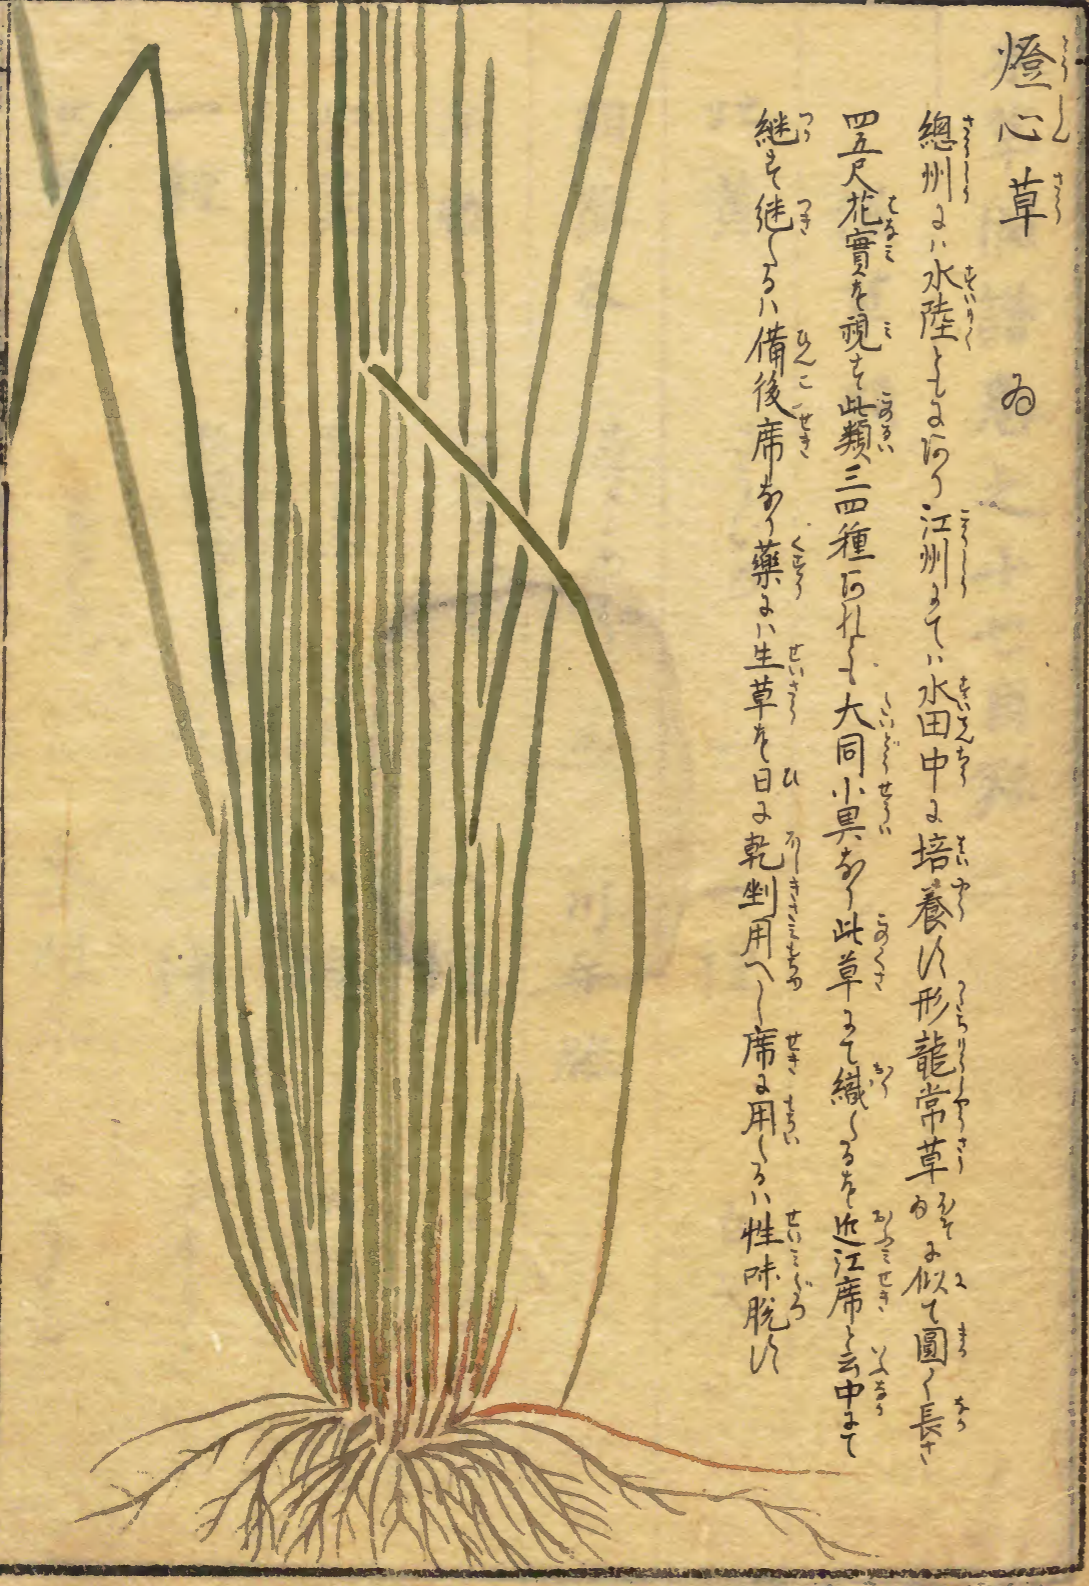 燈心草 ゐ
總州にハ水陸ともにあり江州にてハ水田中に培養す形龍常草に似て圓く長さ
四五尺花實を視す此類三四種あれとも大同小異なり此草にて織たるを近江席と云中にて
継す継たるハ備後席なり藥にハ生草を日に乾剉用へし席に用たるハ性味脱す